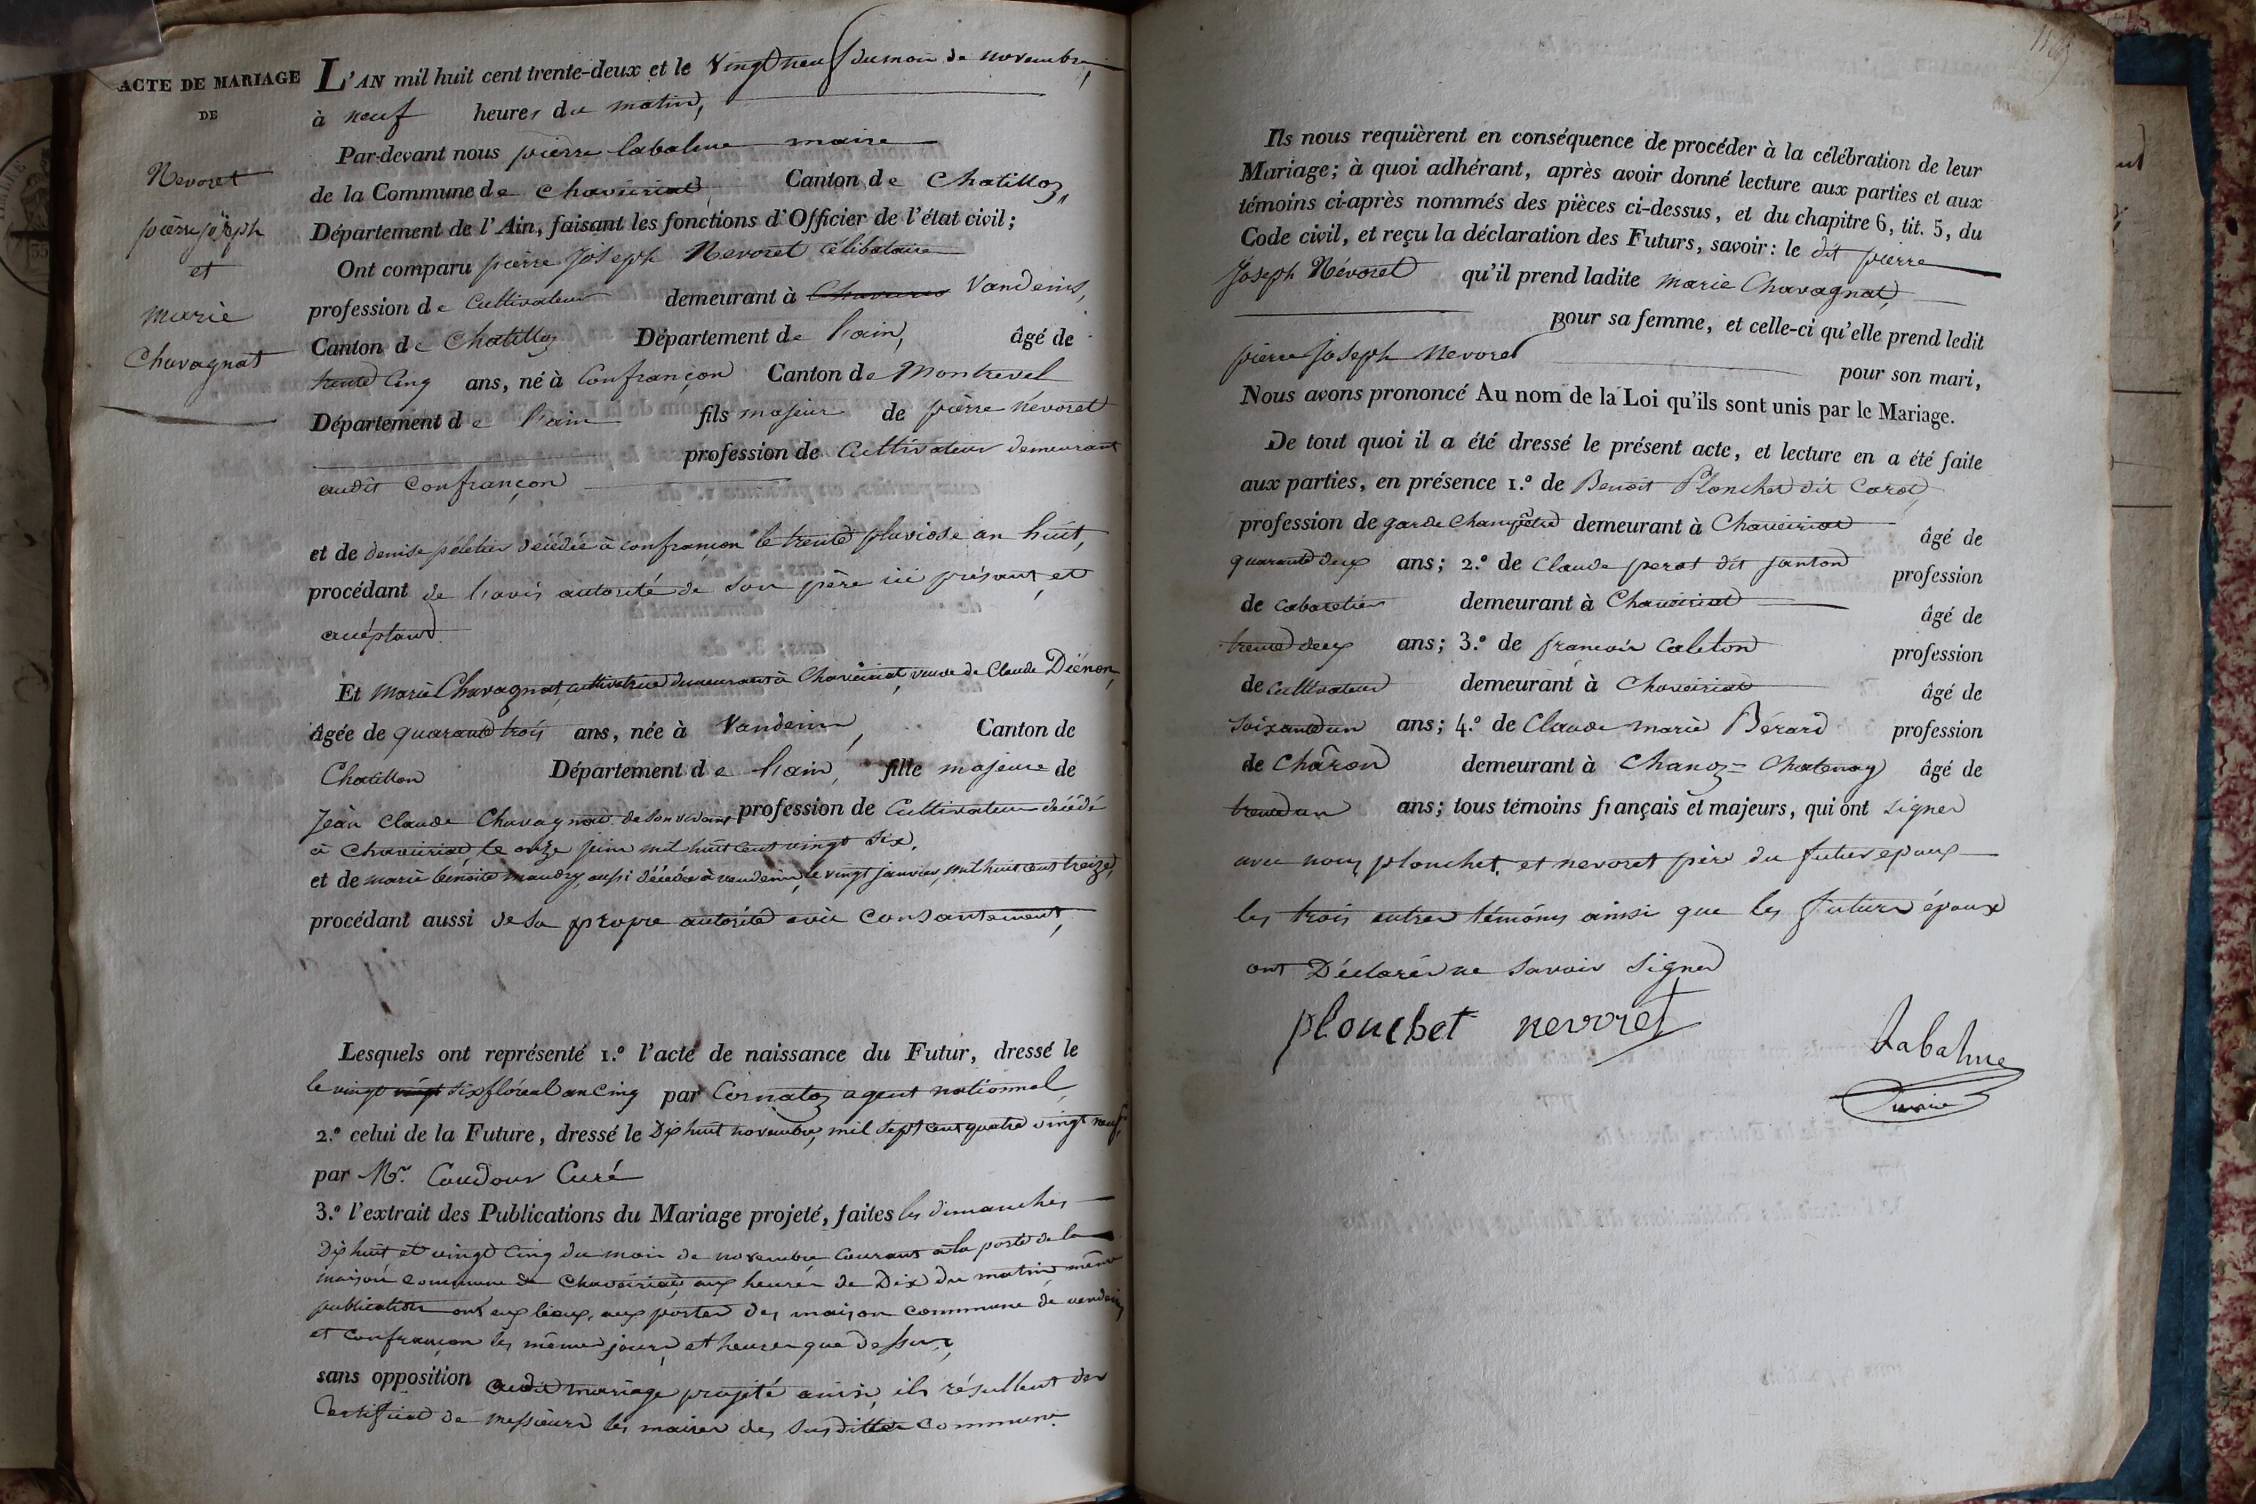 ACTE DE MARIAGE
DE
Nevoret
pierre joseph
et
marie
Chavagnat
L'AN mil huit cent trente-deux et le Vingt neuf du mois de novembre,
à neuf heures du matin,
Par-devant nous pierre labalme maire
de la Commune de Chaveiriat, Canton de Chatillon,
Département de l'Ain, faisant les fonctions d'Officier de l'état civil;
Ont comparu pierre Joseph Nevoret célibataire
profession de Cultivateur demeurant à Vandeins,
Canton de Chatillon Département de l'ain, âgé de
trente cinq ans, né à Confrançon Canton de Montrevel
Département de l'ain fils majeur de pierre nevoret
profession de Cultivateur demeurant
audit Confrançon
et de denise péletier décédée à confrançon le trente pluviose an huit,
procédant de l'avis autorité de son père ici présant, et
acceptant.
Et Marie Chavagnat, cultivatrice demeurant à Chaveiriat, veuve de Claude Diénon,
Âgée de quarante trois ans, née à Vandeins, Canton de
Chatillon Département de l'ain, fille majeure de
Jean Claude Chavagnat de son vivant profession de Cultivateur décédé
à Chaveiriat le onze juin mil huit cent vingt six.
et de marie benoite maudry, aussi décédée à vandeins, le vingt janvier, mil huit cent treize,
procédant aussi de sa propre autorité avis consantement,
Lesquels ont représenté 1.º l'acte de naissance du Futur, dressé le
le vingt vingt six floréal an cinq par Cornaton agent nationnal,
2.º celui de la Future, dressé le Dix huit novembre, mil sept cent quatre vingt neuf,
par Mr. Coudour Curé
3.º l'extrait des Publications du Mariage projeté, faites les dimanches
Dix huit et vingt cinq du mois de novembre courant à la porte de la
maison commune de Chaveiriat, aux heures de Dix du matin même
publication ont eux lieux, aux portes des maison commune de vandeins
et confrançon les même jours, et heures que dessus,
sans opposition audit mariage projeté ainsi, ils résultent des
Certificat de messieurs les maires des susdittes commune.
Ils nous requièrent en conséquence de procéder à la célébration de leur
Mariage; à quoi adhérant, après avoir donné lecture aux parties et aux
témoins ci-après nommés des pièces ci-dessus, et du chapitre 6, tit. 5, du
Code civil, et reçu la déclaration des Futurs, savoir: le dit pierre
Joseph Névoret qu'il prend ladite Marie Chavagnat,
pour sa femme, et celle-ci qu'elle prend ledit
pierre Joseph Nevoret
pour son mari,
Nous avons prononcé Au nom de la Loi qu'ils sont unis par le Mariage.
De tout quoi il a été dressé le présent acte, et lecture en a été faite
aux parties, en présence 1.º de Benoit Plonchet dit Carot,
profession de garde Champêtre demeurant à Chaveiriat âgé de
quarante deux ans; 2.º de Claude perat dit janton profession
de cabaretier demeurant à Chaveiriat âgé de
trente deux ans; 3.º de françois Caleton profession
de cultivateur demeurant à Chaveiriat âgé de
soixante un ans; 4.º de Claude marie Bérard profession
de Charon demeurant à Chanoz=Chatenay âgé de
trente un ans; tous témoins français et majeurs, qui ont signer
avec nous, plonchet, et nevoret père du futur epoux
les trois autres témoins ainsi que les futurs époux
ont Déclarés ne savoir signer
plonchet nevoret
Labalme
maire